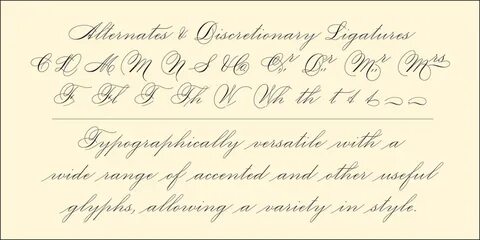 Alternates & Discretionary Ligatures
C D M M N S & Co Cr. Dr. Mr. Mrs
F Fl T Th W Wh th t t
Typographically versatile with a
wide range of accented and other useful
glyphs, allowing a variety in style.